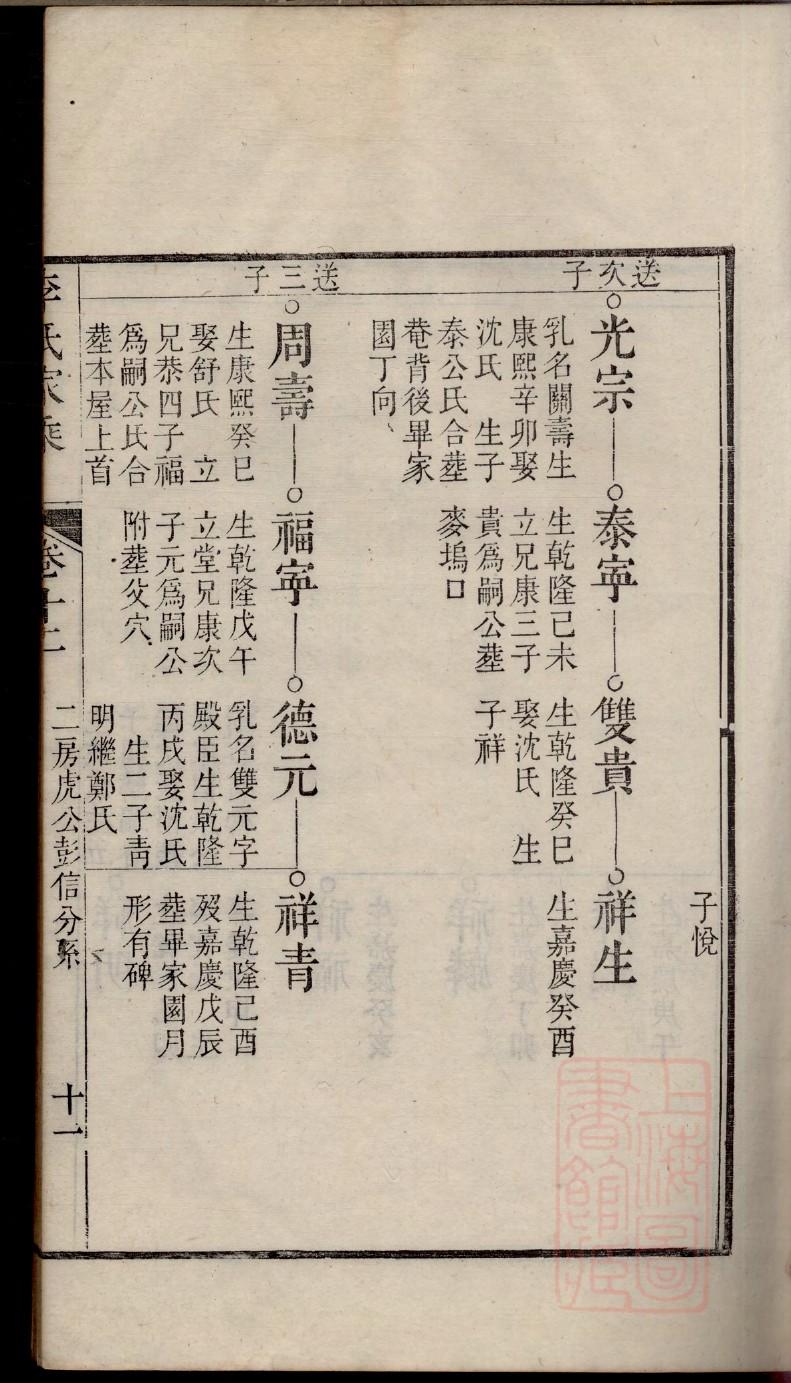 子悅
送次子
光宗
乳名關壽生
康熙辛卯娶
沈氏　生子
泰公氏合塟
菴背後畢家
園丁向、
泰寕
生乾隆己未
立兄康三子
貴爲嗣公塟
麥塢口
雙貴
生乾隆癸巳
娶沈氏　生
子祥
祥生
生嘉慶癸酉
送三子
周壽
生康熙癸巳
娶舒氏　立
兄恭四子福
爲嗣公氏合
塟本屋上首
福寕
生乾隆戊午
立堂兄康次
子元爲嗣公
附塟父穴
德元
乳名雙元字
殿臣生乾隆
丙戌娶沈氏
生二子靑
明繼鄭氏
祥青
生乾隆己酉
歿嘉慶戊辰
塟畢家園月
形有碑
李氏家乘
卷十二
二房虎公彭信分系
十一
上海圖書館藏